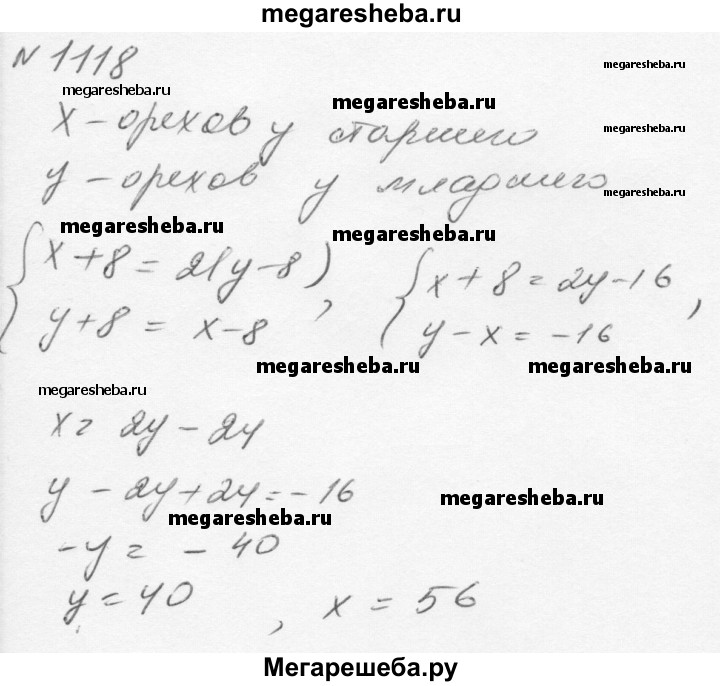 megaresheba.ru
№ 1118
megaresheba.ru
megaresheba.ru
megaresheba.ru
x – орехов у старшего
megaresheba.ru
y – орехов у младшего
megaresheba.ru
megaresheba.ru
megaresheba.ru
{ x + 8 = 2(y – 8)
y + 8 = x – 8 ,
{ x + 8 = 2y – 16
y – x = – 16 ,
megaresheba.ru
megaresheba.ru
megaresheba.ru
x = 2y – 24
y – 2y + 24 = – 16
megaresheba.ru
megaresheba.ru
– y = – 40
y = 40 , x = 56
Мегарешеба.ру